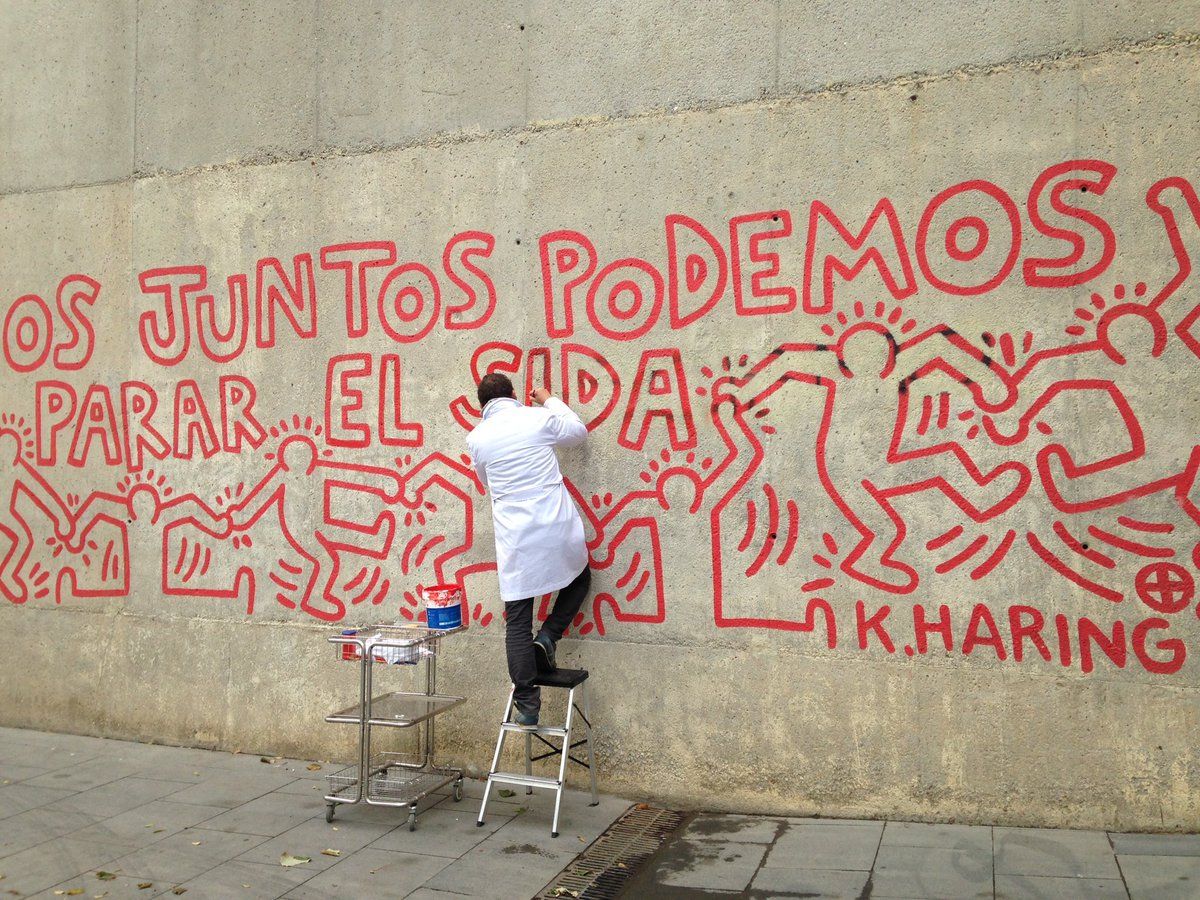 OS JUNTOS PODEMOS
PARAR EL SIDA
K.HARING